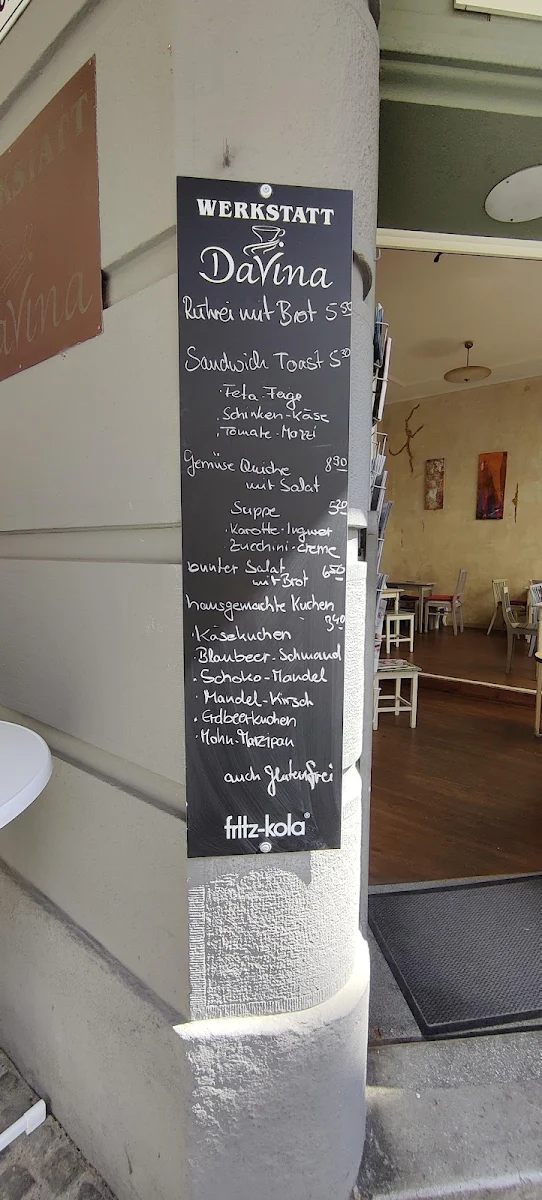 WERKSTATT
DaVina
WERKSTATT
DaVina
Rührei mit Brot 5 50
Sandwich Toast 5 30
· Feta-Feige
· Schinken-Käse
· Tomate-Mozzi
Gemüse Quiche 8 90
mit Salat
Suppe 5 20
· Karotte-Ingwer
Zucchini-creme
bunter Salat
mit Brot 6 50
hausgemachte Kuchen
3 40
· Käsekuchen
Blaubeer-Schmand
· Schoko-Mandel
· Mandel-Kirsch
· Erdbeerkuchen
· Mohn-Marzipan
auch glutenfrei
fritz-kola®